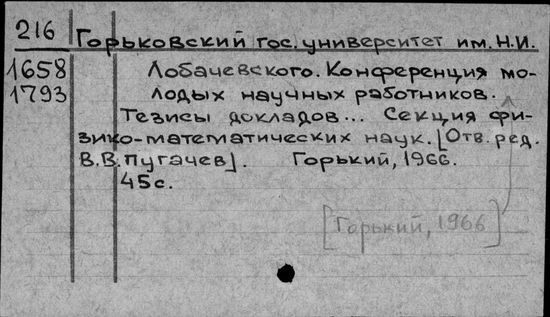 216 Горьковский гос. университет им. Н.И.
1658 Лобачевского. Конференция мо-
1793 лодых научных работников.
Тезисы докладов... Секция фи-
зико-математических наук. [Отв. ред.
В.В. Пугачев]. Горький, 1966.
45с.
[Горький, 1966]